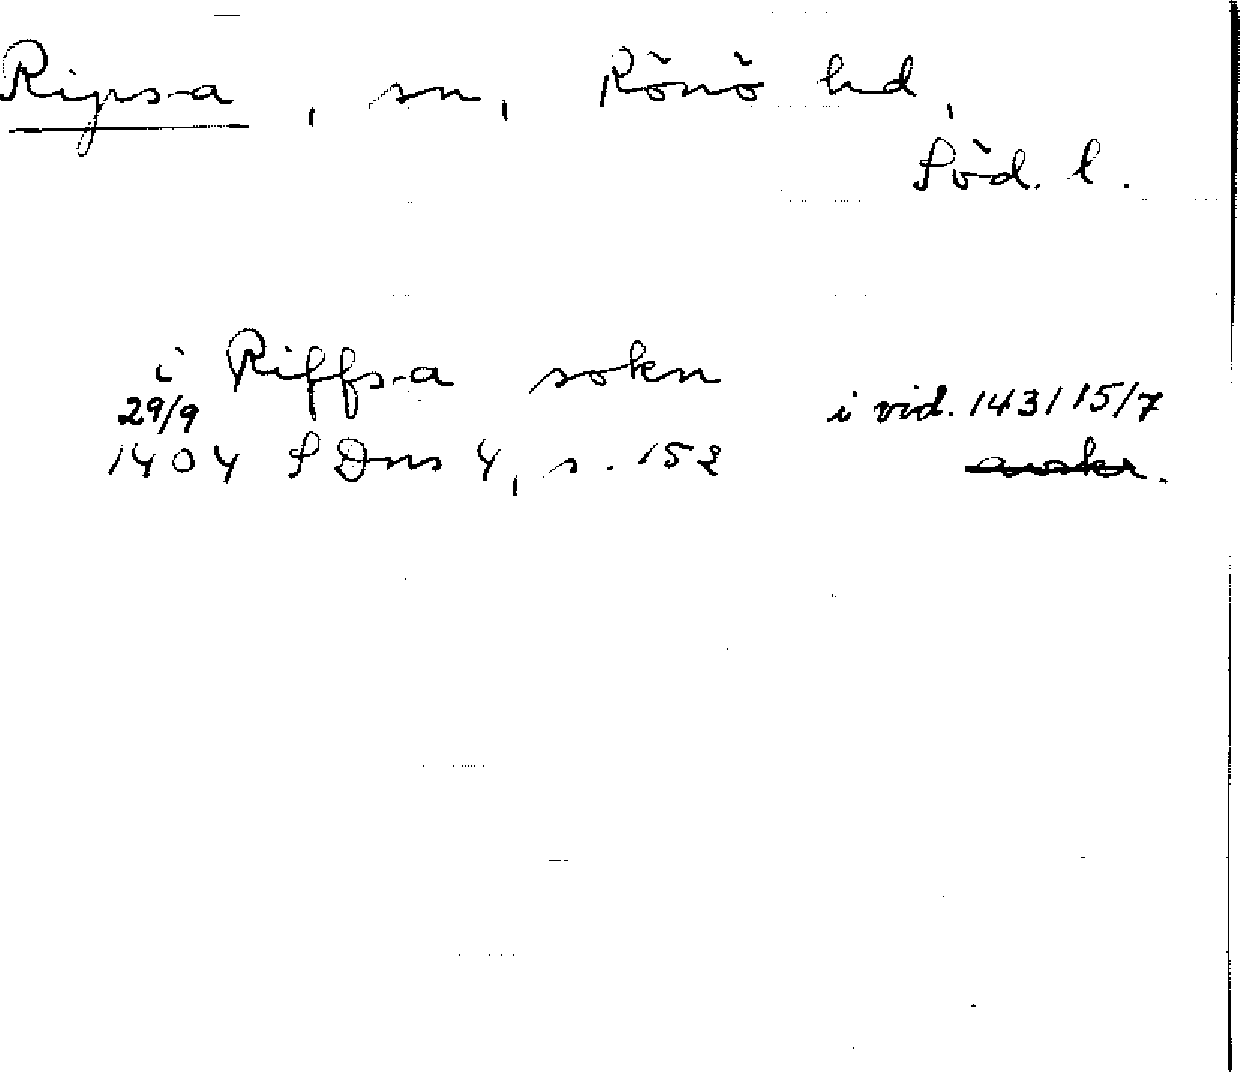 Ripsa, sn, Rönö hd,
Söd. l.
i Riffsa sokn
29/9 i vid. 1431 15/7
1404 SDns 4, s. 152 avskr.